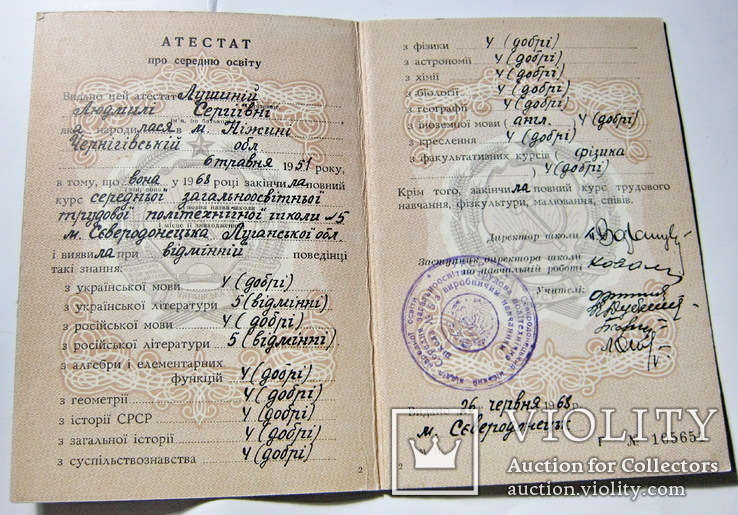 АТЕСТАТ
про середню освіту
Видано цей атестат Лушиній
Людмилі Сергіївні
яка народилася в м. Ніжині
Чернігівській обл.
6 травня 1951 року,
в тому, що вона у 1968 році закінчила повний
курс середньої загальноосвітньої
трудової політехнічної школи №5
м. Сєвєродонецька Луганської обл.
і виявила при відмінній поведінці
такі знання:
з української мови 4 (добрі)
з української літератури 5 (відмінні)
з російської мови 4 (добрі)
з російської літератури 5 (відмінні)
з алгебри і елементарних
функцій 4 (добрі)
з геометрії 4 (добрі)
з історії СРСР 4 (добрі)
з загальної історії 4 (добрі)
з суспільствознавства 4 (добрі)
2
з фізики 4 (добрі)
з астрономії 4 (добрі)
з хімії 4 (добрі)
з біології 4 (добрі)
з географії 4 (добрі)
з іноземної мови (англ. 4 (добрі)
з креслення 4 (добрі)
з факультативних курсів (фізика
) 4 (добрі)
Крім того, закінчила повний курс трудового
навчання, фізкультури, малювання, співів.
Директор школи
Заступник директора школи
по навчальній роботі
Учителі:
Видано 26 червня 1968 р.
м. Сєвєродонецьк
Г № 16565
2
VIOLITY
Auction for Collectors
www.auction.violity.com